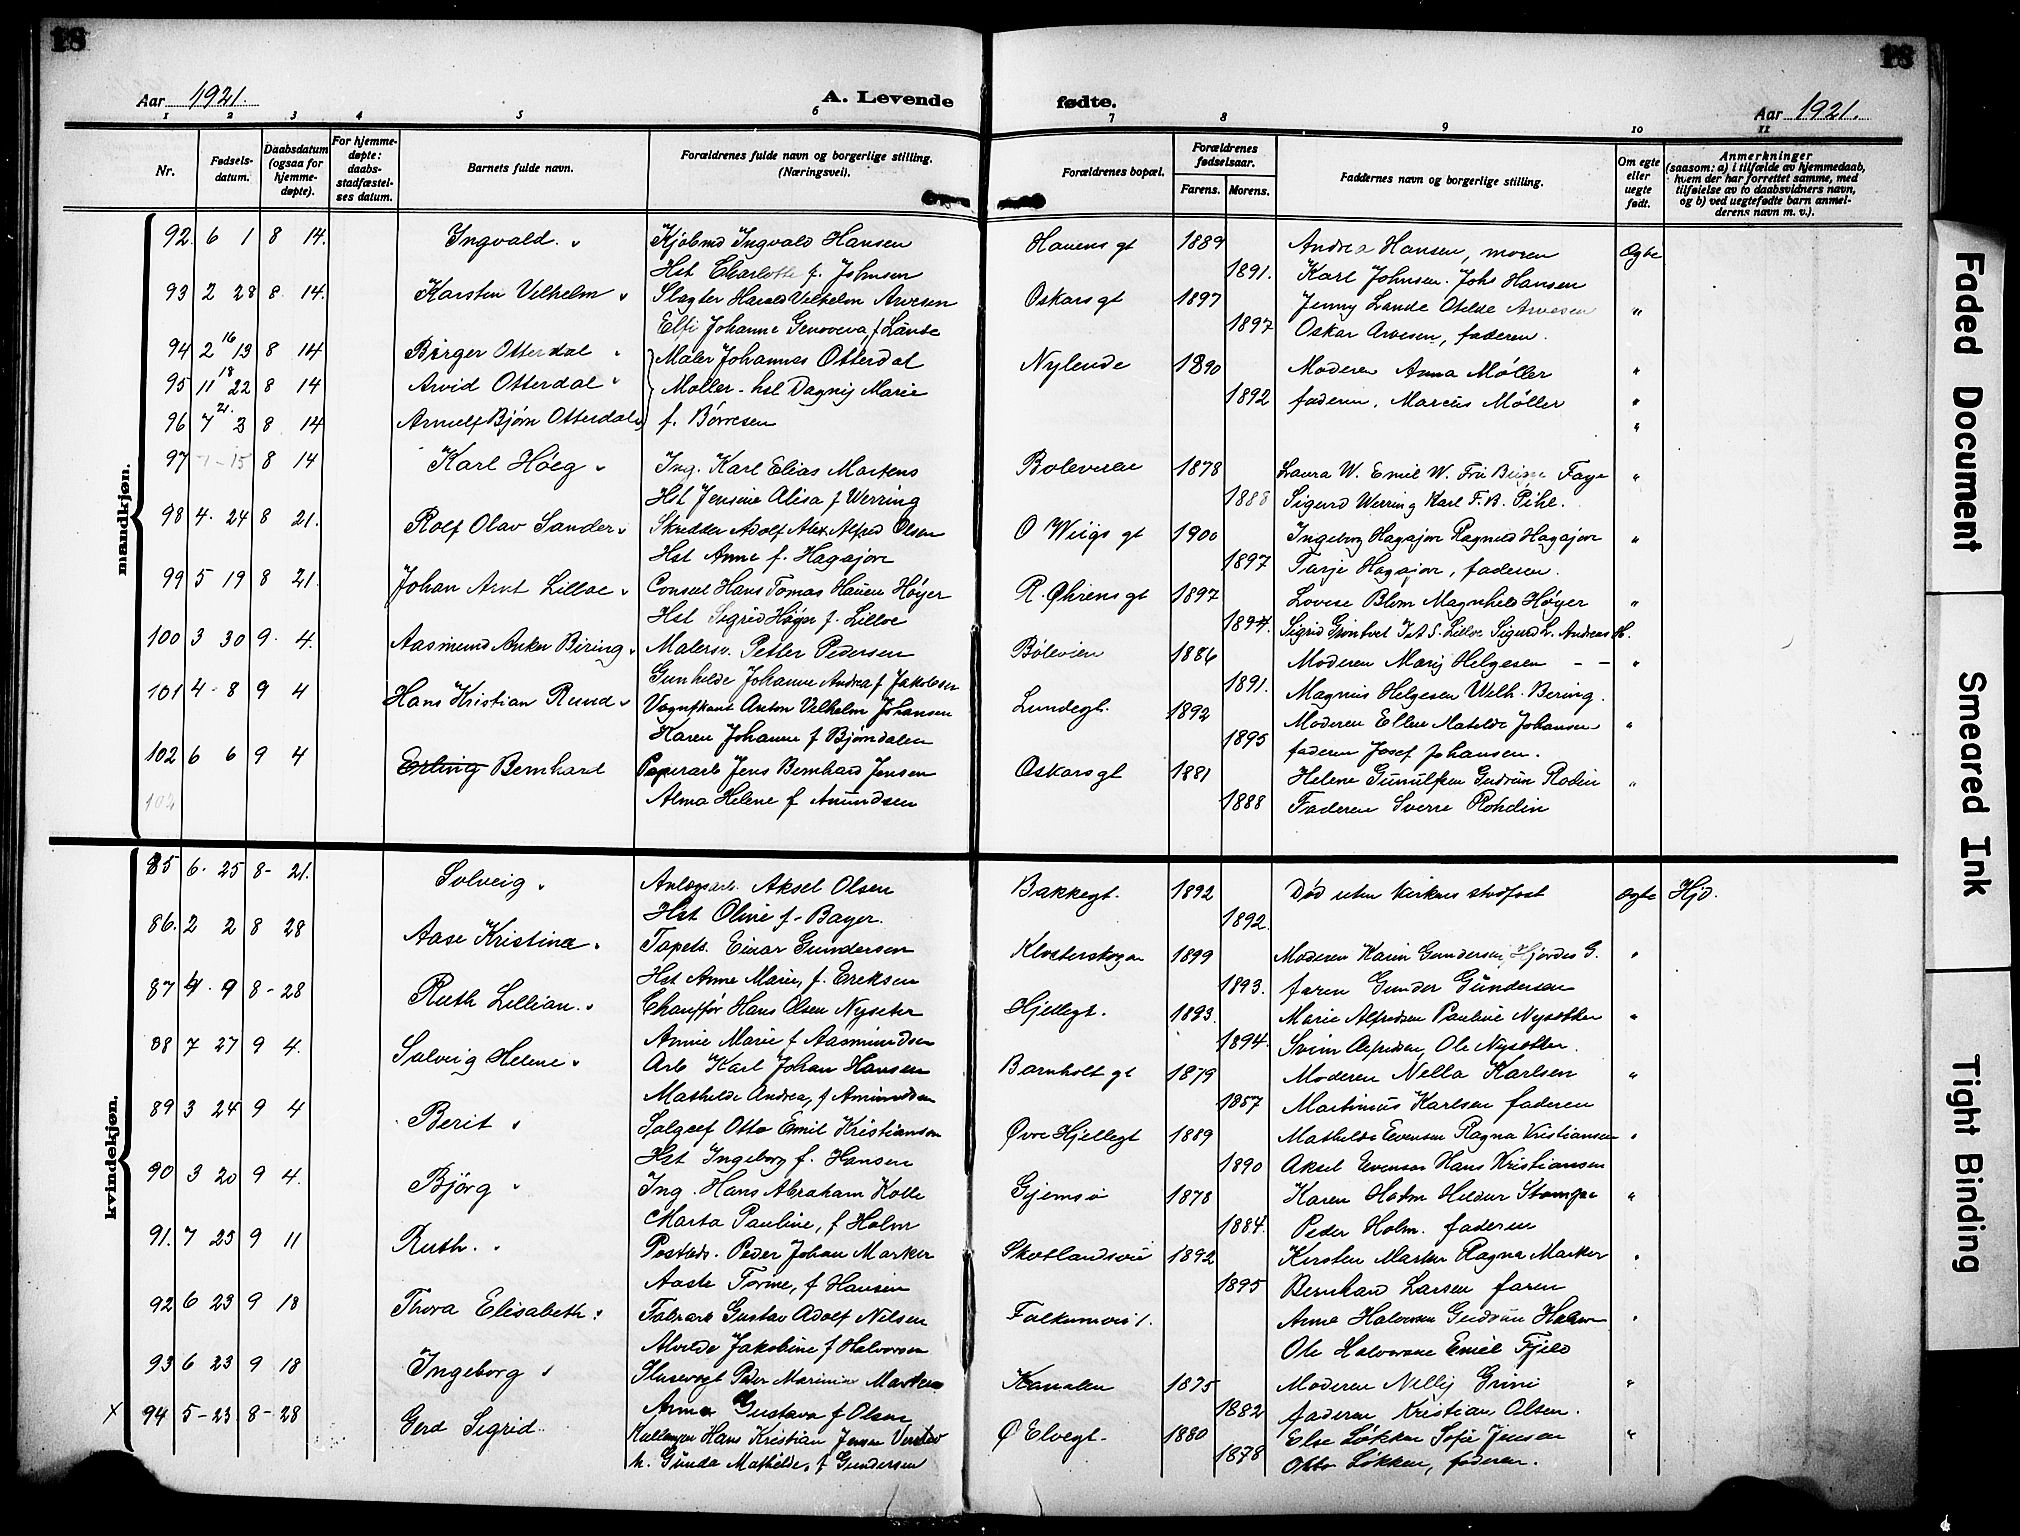 18
18
Aar 1921.
A. Levende
fødte.
Aar 1921.
1 2 3 4 5 6 7 8 9 10 11
Nr.
Fødsels-
datum.
Daabsdatum
(ogsaa for
hjemme-
døpte).
For hjemme-
døpte:
daabs-
stadfæstel-
ses datum.
Barnets fulde navn.
Forældrenes fulde navn og borgerlige stilling.
(Næringsvei).
Forældrenes bopæl.
Forældrenes
fødselsaar.
Farens. Morens.
Faddernes navn og borgerlige stilling.
Om egte
eller
uegte
født.
Anmerkninger
(saasom: a) i tilfælde av hjemmedaab,
hvem der har forrettet samme, med
tilføielse av to daabsvidners navn,
og b) ved uegtefødte barn anmel-
derens navn m. v.).
mandkjøn.
92. 6 1 8 14. Ingvald. Kjøbmd Ingvald Hansen Hauens gt 1889 Andrea Hansen, moren Egte
Hst Charlotte f. Johnsen 1891. Karl Johnsen. Johs Hansen
93 2 28 8. 14. Karsten Vilhelm Slagter Harald Vilhelm Arvesen Oskars gt 1897 Jenny Lande Otilde Arvesen "
Elfi Johanne Genoveva f Lande 1897 Oskar Arvesen, faderen.
94 2 16/13 8 14 Birger Otterdal Maler Johannes Otterdal Nylende 1890 Moderen Anna Møller "
95 11 18/22 8 14 Arvid Otterdal Møller - hst Dagny Marie 1892 faderen. Marcus Møller "
96 7 21/3 8 14 Arnulf Bjørn Otterdal f. Børresen "
97 8 14 Karl Höeg Ing. Karl Elias Martens Boleveien 1878 Laura W. Emil W. Fru Faye "
Hst Jensine Alisa f Werring 1888 Sigurd Werring Karl F. B. Pihl.
98 4. 24 8 21. Rolf Olav Sander Skrædder Adolf Alex. Alfred Olsen O Wiigs gt 1900 Ingeborg Hagajor Ragnhild Hagajor "
Hst Anne f. Hagajor 1897 Tarje Hagajor, faderen.
99 5 19 8 21. Johan Arnt Lilloe Consul Hans Tomas Hauen Høyer R. Øhrens gt 1897 Lovise Blom Magnhild Høyer "
Hst Sigrid Høyer f. Lilloe 1894. Sigrid Grøntvet J. A. S. Lilloe Sigurd L. Andreas H.
100 3 30 9. 4. Aasmund Anker Bering Malersv. Petter Pedersen Böleveien 1886 Moderen Mary Helgesen - - "
Gunhilde Johanne Andrea f Jakobsen 1891. Magnus Helgesen Wilh. Bering.
101 4 - 8 9 4 Hans Kristian Rund Vognfkant Anton Vilhelm Johansen Lundegt. 1892 Moderen Ellen Matilde Johansen "
Karen Johanne f Bjøndalen 1895 faderen Josef Johansen.
102 6 6 9 4 Erling Bernhard Papirarb Jens Bernhard Jensen Oskarsgt 1881 Helene Gunulfsen Gudrun Rodin "
Alma Helene f Amundsen 1888 Faderen Sverre Rohdin
kvindekjøn.
85 6. 25 8 - 21. Solveig Anlægsarb. Aksel Olsen Bakkegt. 1892 Död uten Kirkens stadfæst Egte Hjd.
Hst Oline f - Bayer. 1892.
86. 2 2 8 28 Aase Kristina Tapets. Einar Gundersen Klosterskogen 1899 Moderen Karin Gundersen, Hjørdes G. "
Hst Anne Marie, f. Eriksen 1893. faren Gunder Gundersen
87 4. 9 8 - 28 Ruth Lillian. Chauffør Hans Olsen Nyseter Hjellegt. 1893. Marie Alfredsen Pauline Nysetter "
Annie Marie f Aasmundsen 1894. Svein Alfredsen, Ole Nysetter.
88 7 27 9 4. Solveig Helene Arb Karl Johan Hansen Barnholt gt 1879 Moderen Nella Karlsen "
Mathilde Andrea, f Amundsen 1887 Martinius Karlsen faderen
89 3 24 9 4 Berit Salgsef Otto Emil Kristiansen Øvre Hjellegt 1889 Mathilde Evensen Ragna Kristiansen "
Hst Ingeborg f. Hansen 1890 Aksel Evensen Hans Kristiansen
90 3 20 9 4. Björg Ing. Hans Abraham Kolle Gjemsø 1878 Karen Holm Hildur Stampe "
Marta Pauline, f Holm 1884. Peder Holm. faderen
91. 7 25 9 11 Ruth. Postbds. Peder Johan Marker Skotlandsvei 1892 Kirsten Marker Ragna Marker "
Aaste Torine, f Hansen 1895 Bernhard Larsen faren
92 6 23 9 18 Thora Elisabeth Fabrarb Gustav Adolf Nilsen Falkumvei 1. Anna Halvorsen Gudrun Halvor "
Alvilde Jakobine f Halvorsen Ole Halvorsen Emil Fjeld
93 6 23 9 18 Ingeborg Slusevogt Peder Marinius Kanalen 1875 Moderen Nelly Grini "
Anna Gustava f Olsen 1882 faderen Kristian Olsen.
X 94 5 - 23 8 - 28 Gerd Sigrid Hans Kristian Jensen Ø Elvegt. 1880 Else Løkken Sofie Jensen "
h. Gunda Mathilde, f Gundersen 1878 Otto Løkken, faderen.
Faded Document
Smeared Ink
Tight Binding